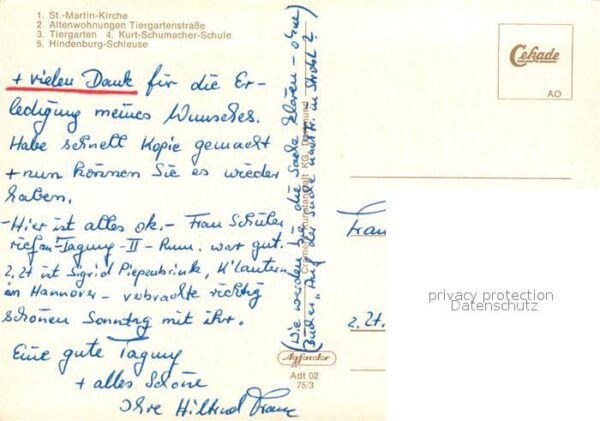 1. St.-Martin-Kirche
2. Altenwohnungen Tiergartenstraße
3. Tiergarten 4. Kurt-Schumacher-Schule
5. Hindenburg-Schleuse
+ vielen Dank für die Er-
ledigung meines Wunsches.
Habe schnell Kopie gemacht
+ nun können Sie es wieder
haben.
- Hier ist alles ok. - Frau Schüler
-Tagung - II - war gut.
z. Zt. ist Sigrid Piepenbrink, K'lautern
in Hannover - verbrachte richtig
schönen Sonntag mit ihr.
Eine gute Tagung
+ alles Schöne
Ihre Hiltrud
(Wir werden ja die Sache klären - ohne
Bücher "Auf der Suche nach
Cramers Kunstanstalt KG, Dortmund
Agfacolor
Adt 02
75/3
Cekade
AO
Frau
z. Zt.
privacy protection
Datenschutz